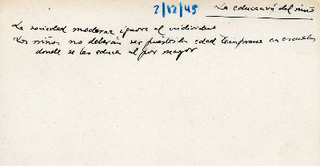 2/12/45
La educación del niño
La sociedad moderna ignora el individuo
Los niños no deberán ser puestos en edad temprana en escuelas
donde se les educa al por mayor